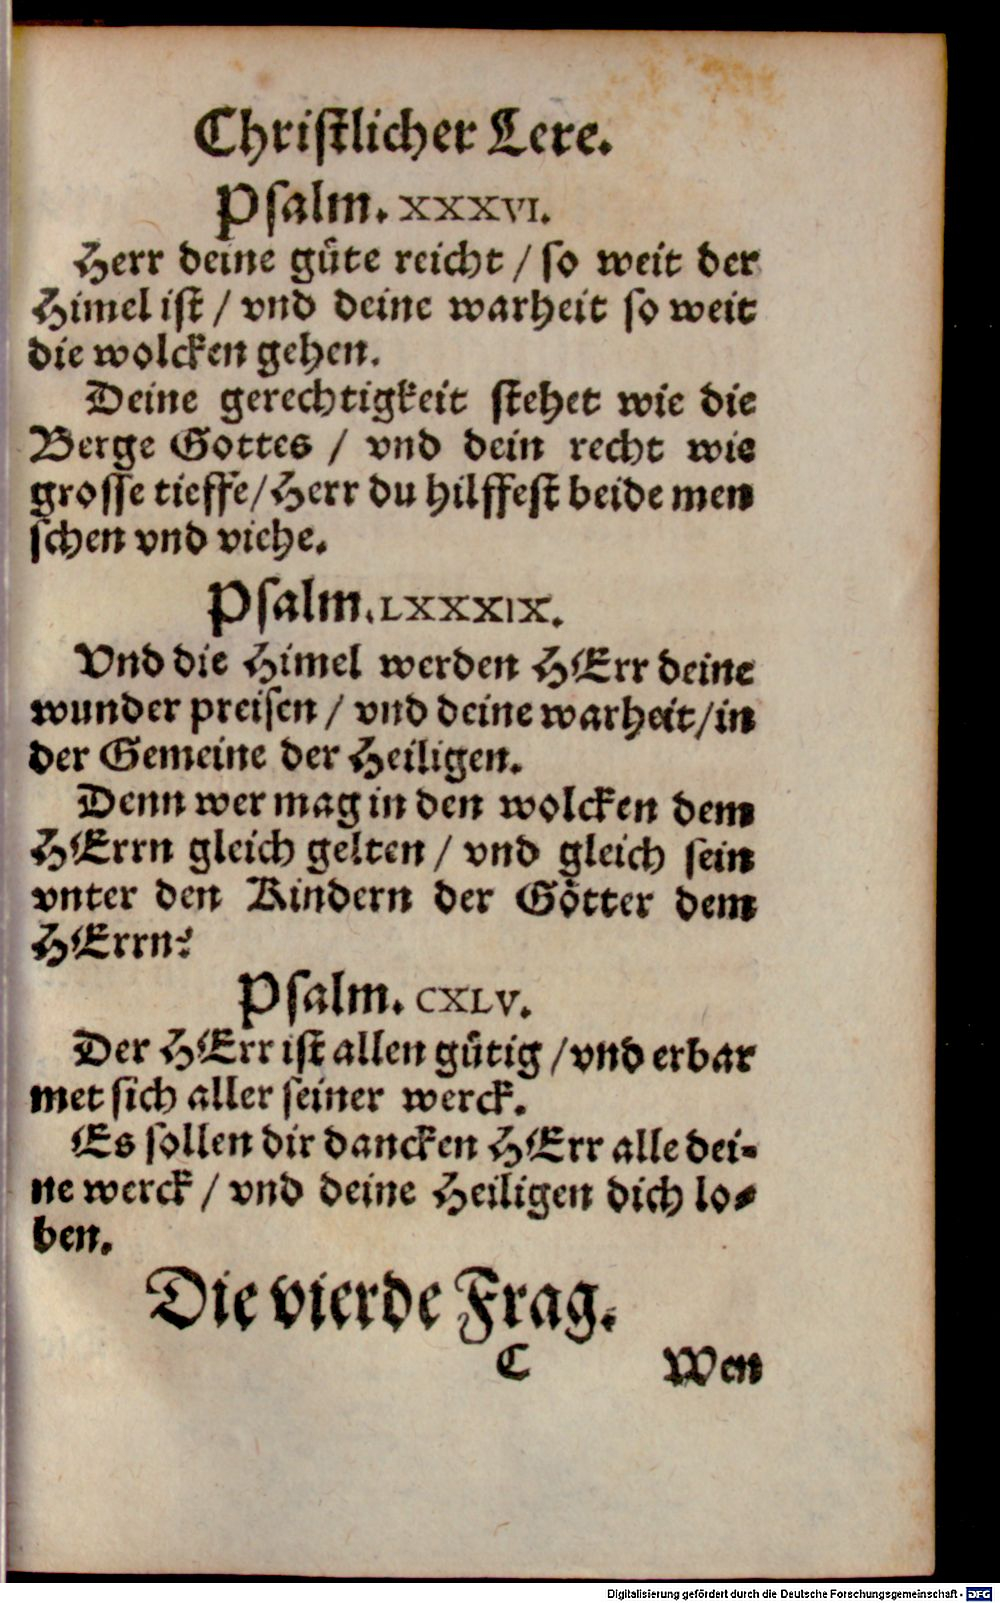 Christlicher Lere.
Psalm. XXXVI.
Herr deine güte reicht / so weit der
Himel ist / vnd deine warheit so weit
die wolcken gehen.
Deine gerechtigkeit stehet wie die
Berge Gottes / vnd dein recht wie
grosse tieffe / Herr du hilffest beide men
schen vnd viehe.
Psalm. LXXXIX.
Vnd die Himel werden HErr deine
wunder preisen / vnd deine warheit / in
der Gemeine der Heiligen.
Denn wer mag in den wolcken dem
HErrn gleich gelten / vnd gleich sein
vnter den Kindern der Götter dem
HErrn?
Psalm. CXLV.
Der HErr ist allen gütig / vnd erbar
met sich aller seiner werck.
Es sollen dir dancken HErr alle dei-
ne werck / vnd deine Heiligen dich lo-
ben.
Die vierde Frag.
C Wen
Digitalisierung gefördert durch die Deutsche Forschungsgemeinschaft - DFG